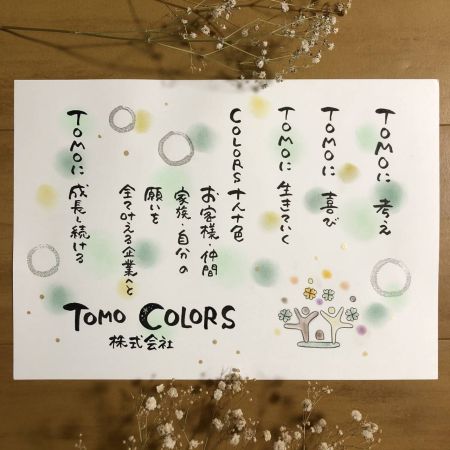 TOMOに 考え
TOMOに 喜び
TOMOに 生きていく
COLORS 十人十色
お客様・仲間
家族・自分の
願いを
全て叶える企業へと
TOMOに 成長し続ける
TOMO COLORS
株式会社